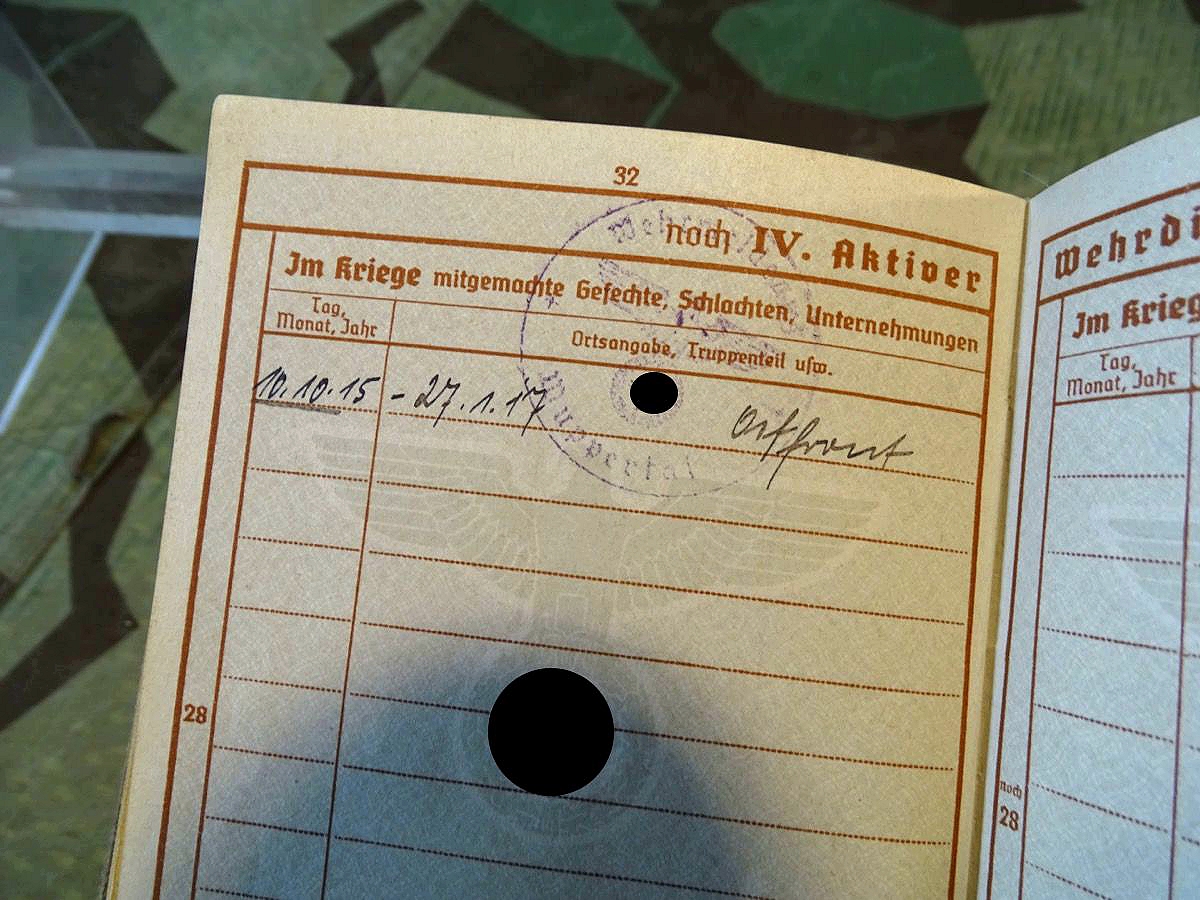 32
noch IV. Aktiver
Im Kriege mitgemachte Gefechte, Schlachten, Unternehmungen
Tag,
Monat, Jahr
Ortsangabe, Truppenteil usw.
10.10.15 - 27.1.17 Ostfront
Wuppertal
28
Wehrdi
Im Krieg
Tag,
Monat, Jahr
noch
28